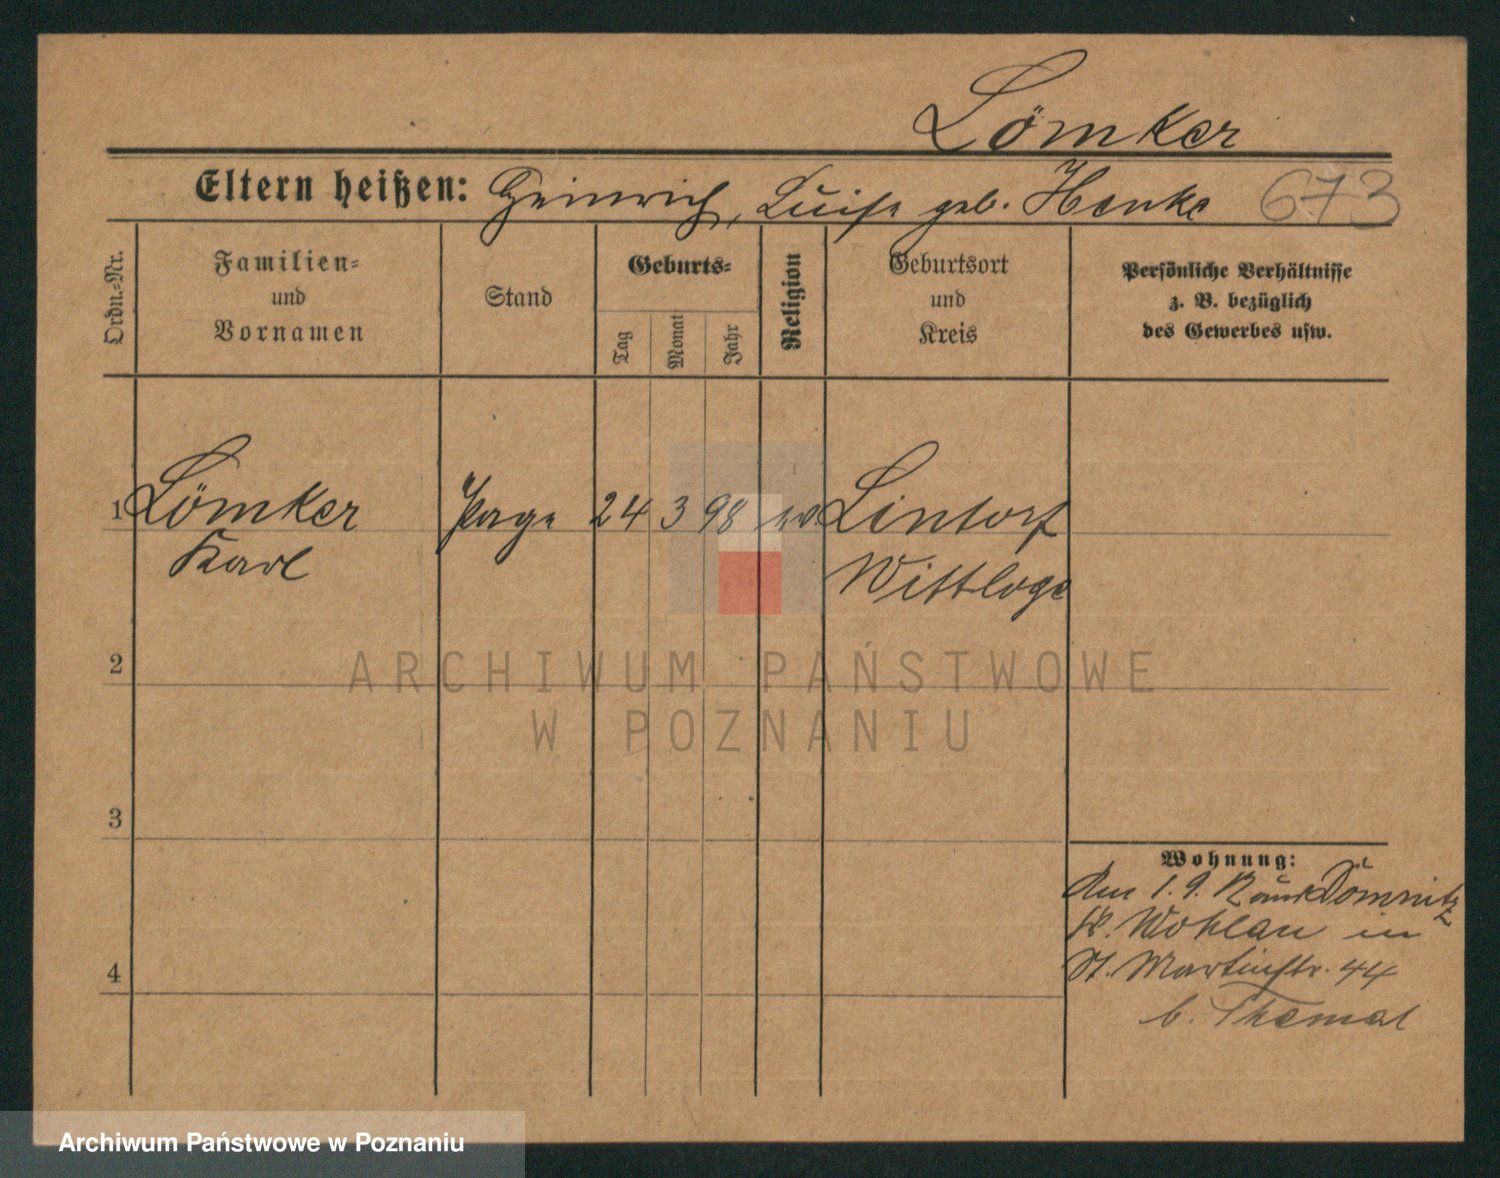 Lömker
Eltern heißen: Heinrich, Luise geb. Henke 673
Ordn.-Nr.
Familien-
und
Vornamen
Stand
Geburts-
Tag
Monat
Jahr
Religion
Geburtsort
und
Kreis
Persönliche Verhältnisse
z. B. bezüglich
des Gewerbes usw.
1 Lömker Page 24 3 98 ev. Lintorf
Karl Wittlage
2
ARCHIWUM PAŃSTWOWE
W POZNANIU
3
4
Wohnung:
Am 1. 9. 12 aus Dömnitz
Kr. Wohlau in
St. Martinstr. 44
b. Themal
Archiwum Państwowe w Poznaniu